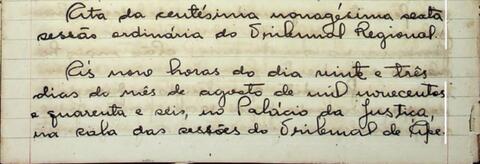 Ata da centésima nonagésima sexta
sessão ordinária do Tribunal Regional.
Ás nove horas do dia vinte e três
dias do mês de agosto de mil novecentos
e quarenta e seis, no Palácio da Justiça,
na sala das sessões do Tribunal de Ape-